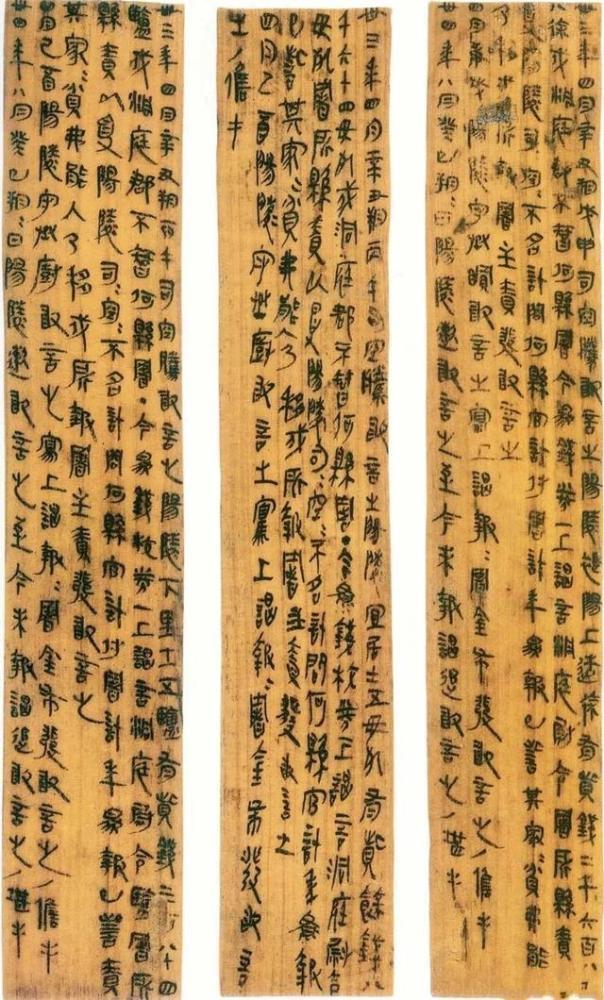 卅三年四月辛丑朔戊申司空騰敢言之陽陵褆陽上造徐有貲錢二千六百八十
八徐戍洞庭郡不智何縣署今為錢校券一上謁言洞庭尉令署所縣責
以受陽陵司=空=不名計問何縣官計付署計年為報已訾其家=貧弗能
入乃移戍所報署主責發敢言之
四月庚戌陽陵守丞瞫敢言之寫上謁報=署金布發敢言之/儋手
卅四年八月癸巳朔=日陽陵遬敢言之至今未報謁追敢言之/堪手
卅三年四月辛丑朔丙午司空騰敢言之陽陵宜居士五毋死有貲餘錢八
千六十四毋死戍洞庭郡不智何縣署·今為錢校券一上謁言洞庭尉令
毋死署所縣責以受陽陵司=空=不名計問何縣官計年為報
已訾其家=貧弗能入乃移戍所報署主責發敢言之
四月己酉陽陵守丞廚敢言之寫上謁報=署金布發敢言
之/儋手
卅三年四月辛丑朔丙午司空騰敢言之陽陵下里士五鹽有貲錢三百八十四
鹽戍洞庭郡不智何縣署·今為錢校券一上謁言洞庭尉令鹽署所
縣責以受陽陵司=空=不名計問何縣官計付署計年為報已訾責
其家=貧弗能入乃移戍所報署主責發敢言之
四月己酉陽陵守丞廚敢言之寫上謁報=署金布發敢言之/儋手
卅四年八月癸巳朔=日陽陵遬敢言之至今未報謁追敢言之/堪手